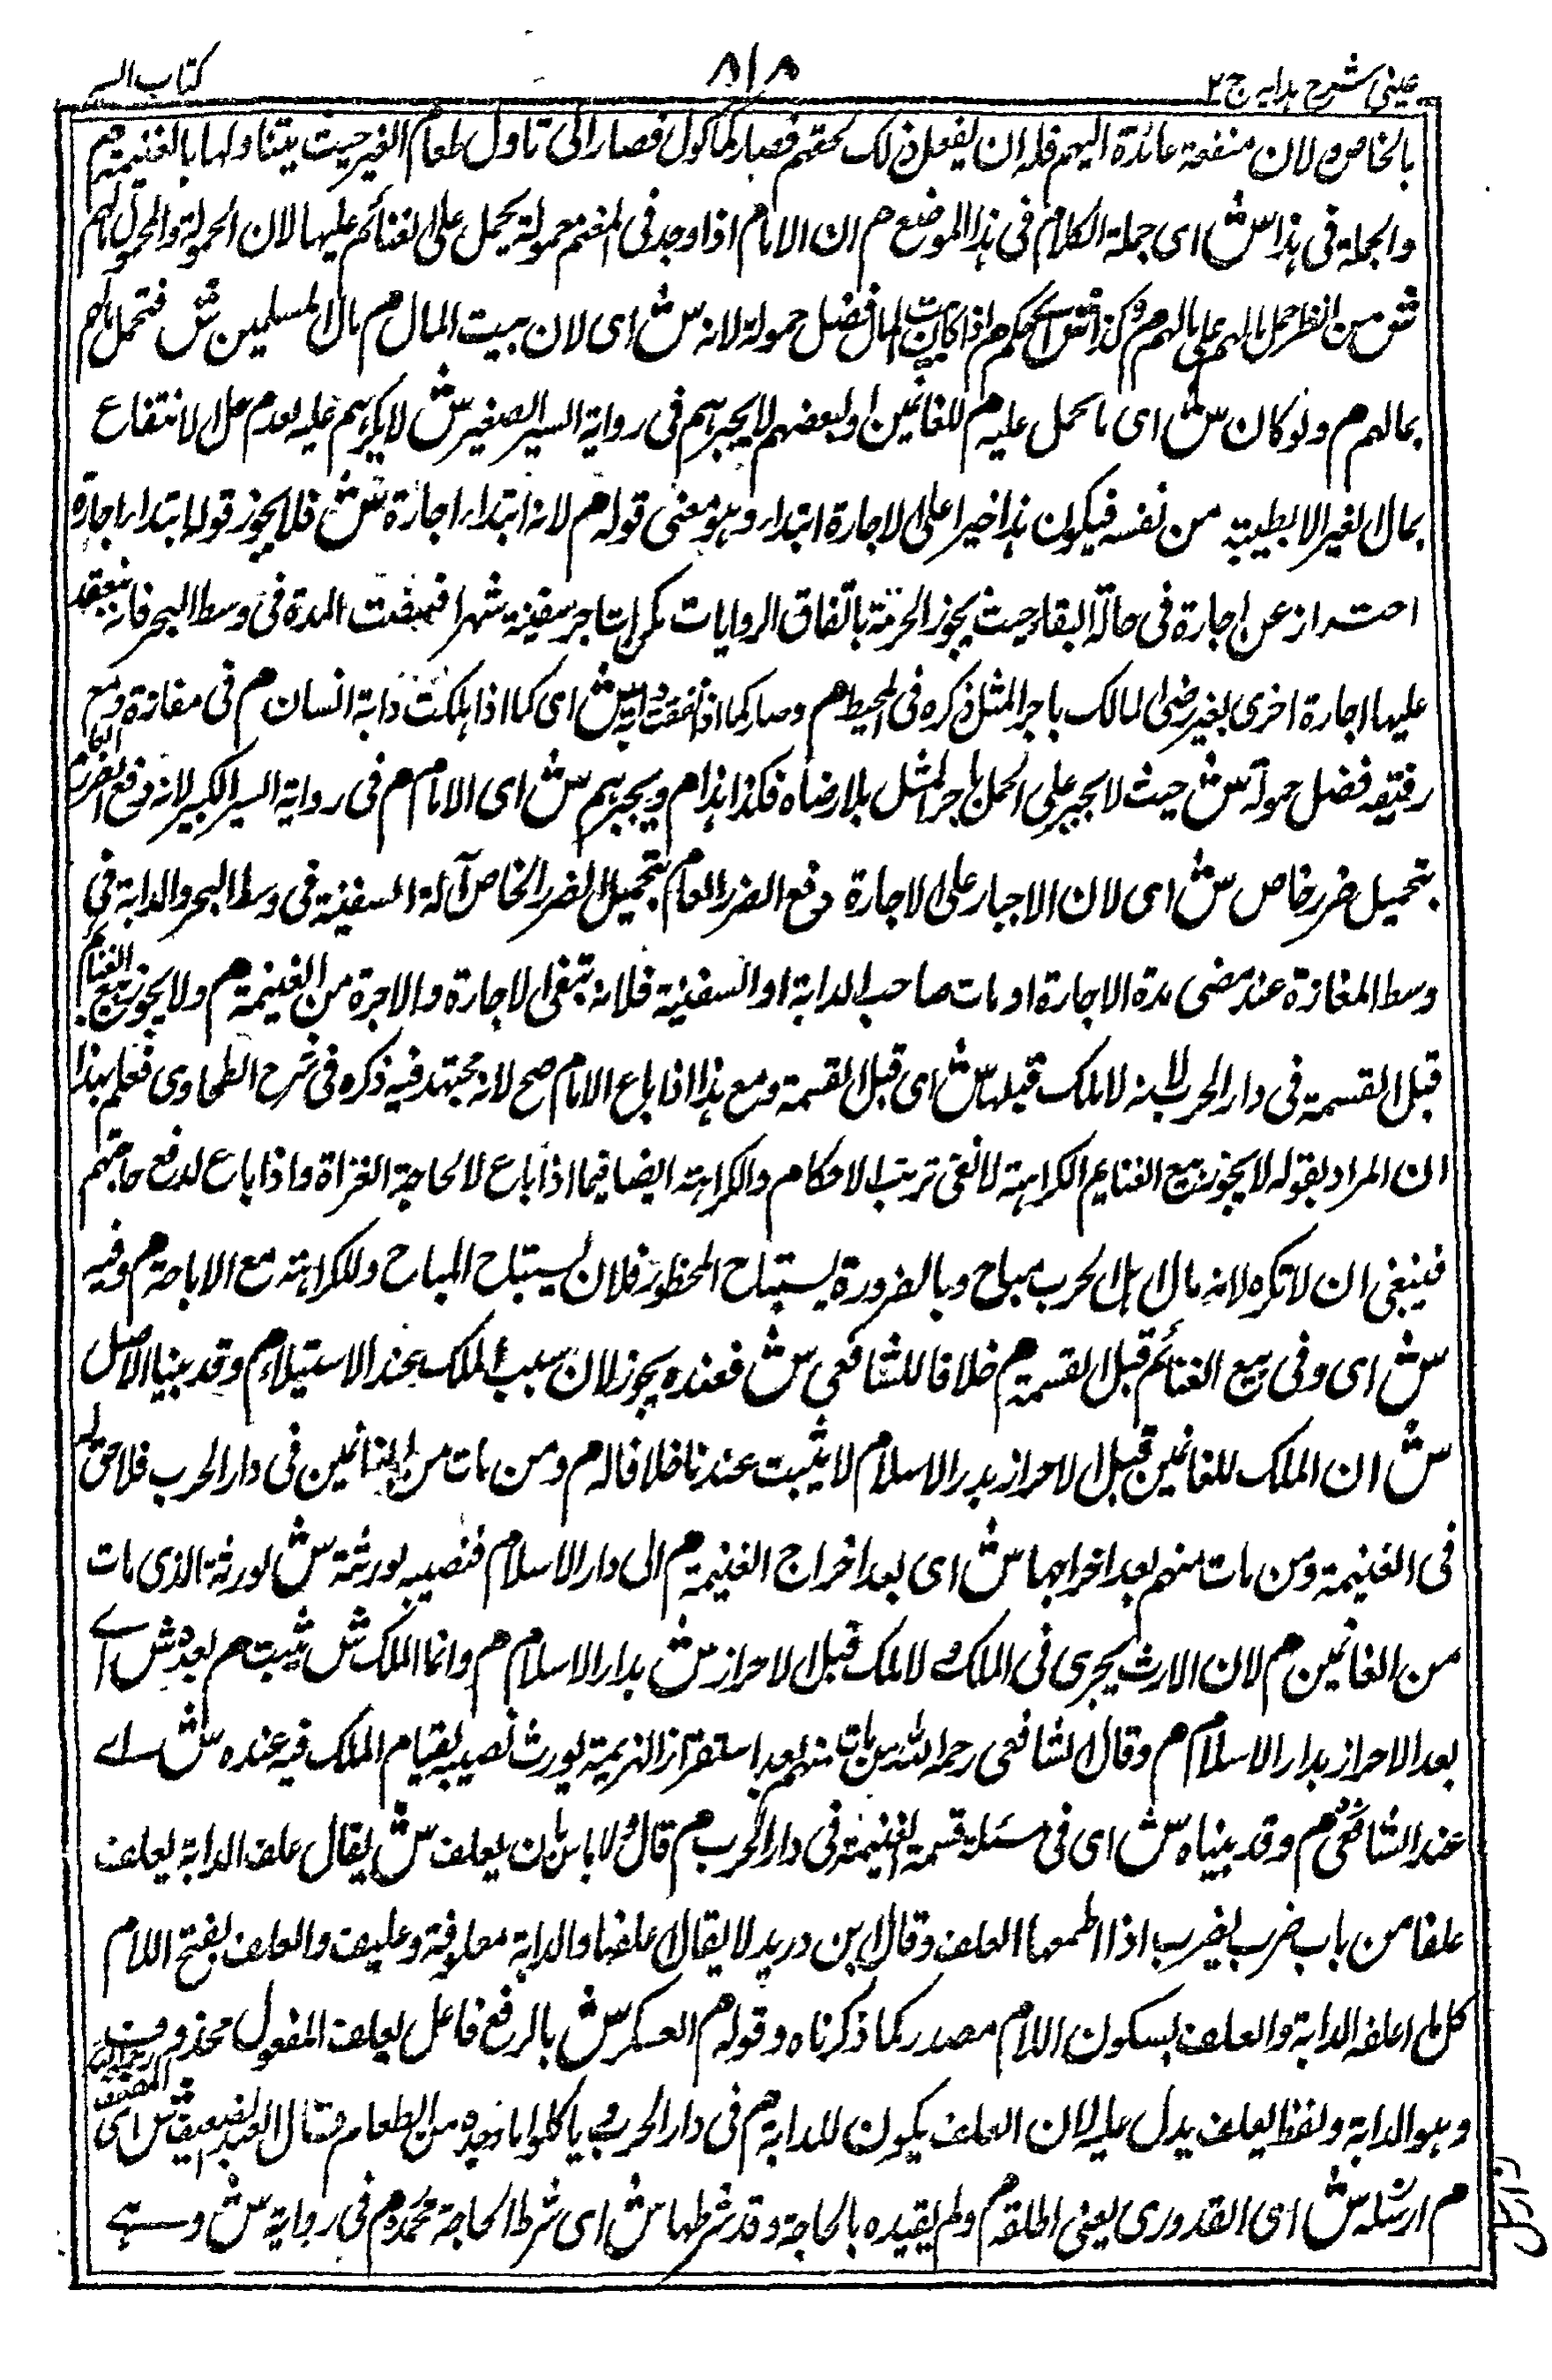 عینی شرح ہدایہ ج ۲
۸۱۸
کتاب السیر
بالخاص ولان منفعة عائدة الیهم فله ان یفعل ذلک لحقهم فصار کما کول فصار الی تناول طعام الغیر حیث یتناولها بالغنیمة م
والجملة فی هذا ش ای جملة الکلام فی هذا الموضع م ان الامام اذا وجد فی المغنم حمولة یحمل علی الغنائم علیها لان الحمولة والمحمول مالهم
ش من النظر حمل مالهم علی مالهم م وکذا ش الحکم م اذا کان فی بیت المال فضل حمولة لانه ش ای لان بیت المال م مال المسلمین ش فتحمل مالهم
بمالهم م ولو کان ش ای ما یحمل علیه م للغانمین او لبعضهم لا یجبرهم فی روایة السیر الصغیر ش لا یکرههم علیه لعدم حل الانتفاع
بمال الغیر الا بطیبة من نفسه فیکون هذا خیرا علی الاجارة ابتداء وهو معنی قوله م لانه ابتداء اجارة ش فلا یجوز قوله ابتداء اجارة
احتراز عن اجارة فی حالة البقاء حیث یجوز الحرمة باتفاق الروایات کمن استاجر سفینة شهرا فمضت المدة فی وسط البحر فانه ینعقد
علیها اجارة اخری بغیر رضی المالک باجر المثل ذکره فی المحیط م وصار کما اذا نفقت دابته ش ای کما اذا هلکت دابة انسان م فی مفازة ومع
رفیقه فضل حمولة ش حیث لا یجبر علی الحمل باجر المثل بلا رضاه فکذا هذا م ویجبرهم ش ای الامام م فی روایة السیر الکبیر لانه دفع الضرر العام
بتحمیل ضرر خاص ش ای لان الاجبار علی الاجارة دفع الضرر العام بتحمیل الضرر الخاص آلة السفینة فی وسط البحر والدابة فی
وسط المفازة عند مضی مدة الاجارة او مات صاحب الدابة او السفینة فلانه تبغی الاجارة والاجرة من الغنیمة م ولا یجوز بیع الغنائم
قبل القسمة فی دار الحرب لانه لا ملک قبلها ش ای قبل القسمة ومع هذا اذا باع الامام صح لانه مجتهد فیه ذکره فی شرح الطحاوی فعلم بهذا
ان المراد بقوله لا یجوز بیع الغنایم الکراهة لا نفی ترتب الاحکام والکراهة ایضا فیما اذا باع لا لحاجة الغزاة واذا باع لدفع حاجتهم
فینبغی ان لا تکره لانه مال اهل الحرب مباح وبالضرورة یستباح المحظور فلان یستباح المباح وللکراهة مع الاباحة م وفیه
ش ای وفی بیع الغنائم قبل القسمة م خلافا للشافعی ش فعنده یجوز لان سبب الملک عند الاستیلاء م وقد بینا الاصل
ش ان الملک للغانمین قبل الاحراز بدر الاسلام لا یثبت عندنا خلافا له م ومن مات من الغانمین فی دار الحرب فلا حق له
فی الغنیمة ومن مات منهم بعد اخراجها ش ای بعد اخراج الغنیمة م الی دار الاسلام فنصیبه لورثته ش لورثة الذی مات
من الغانمین م لان الارث یجری فی الملک ولا ملک قبل الاحراز ش بدار الاسلام م وانما الملک ش یثبت م بعده ش اے
بعد الاحراز بدار الاسلام م وقال الشافعی رحمه الله من مات منهم بعد استقرار الهزیمة یورث نصیبه لقیام الملک فیه عنده ش اے
عند الشافعی م وقد بیناه ش ای فی مسئلة قسمة الغنیمة فی دار الحرب م قال ولا باس بان یعلف ش یقال علف الدابة یعلف
علفا من باب ضرب یضرب اذا اطعمها العلف وقال ابن درید لا یقال اعلفها والدابة معلوفة وعلیف والعلف بفتح اللام
کل ما اعلفه الدابة والعلف بسکون اللام مصدر کما ذکرناه وقوله م العسکر ش بالرفع فاعل یعلف المفعول محذوف
وهو الدابة ولفظ یعلف یدل علیه لان العلف یکون للدابة م فی دار الحرب ویاکلوا ما وجدوه من الطعام م قال العبد الضعیف ش ای المصنف رحمه الله
م ارسله ش ای القدوری یعنی اطلقه م ولم یقیده بالحاجة وقد شرطها ش ای شرط الحاجة محمد م فی روایة ش وهے